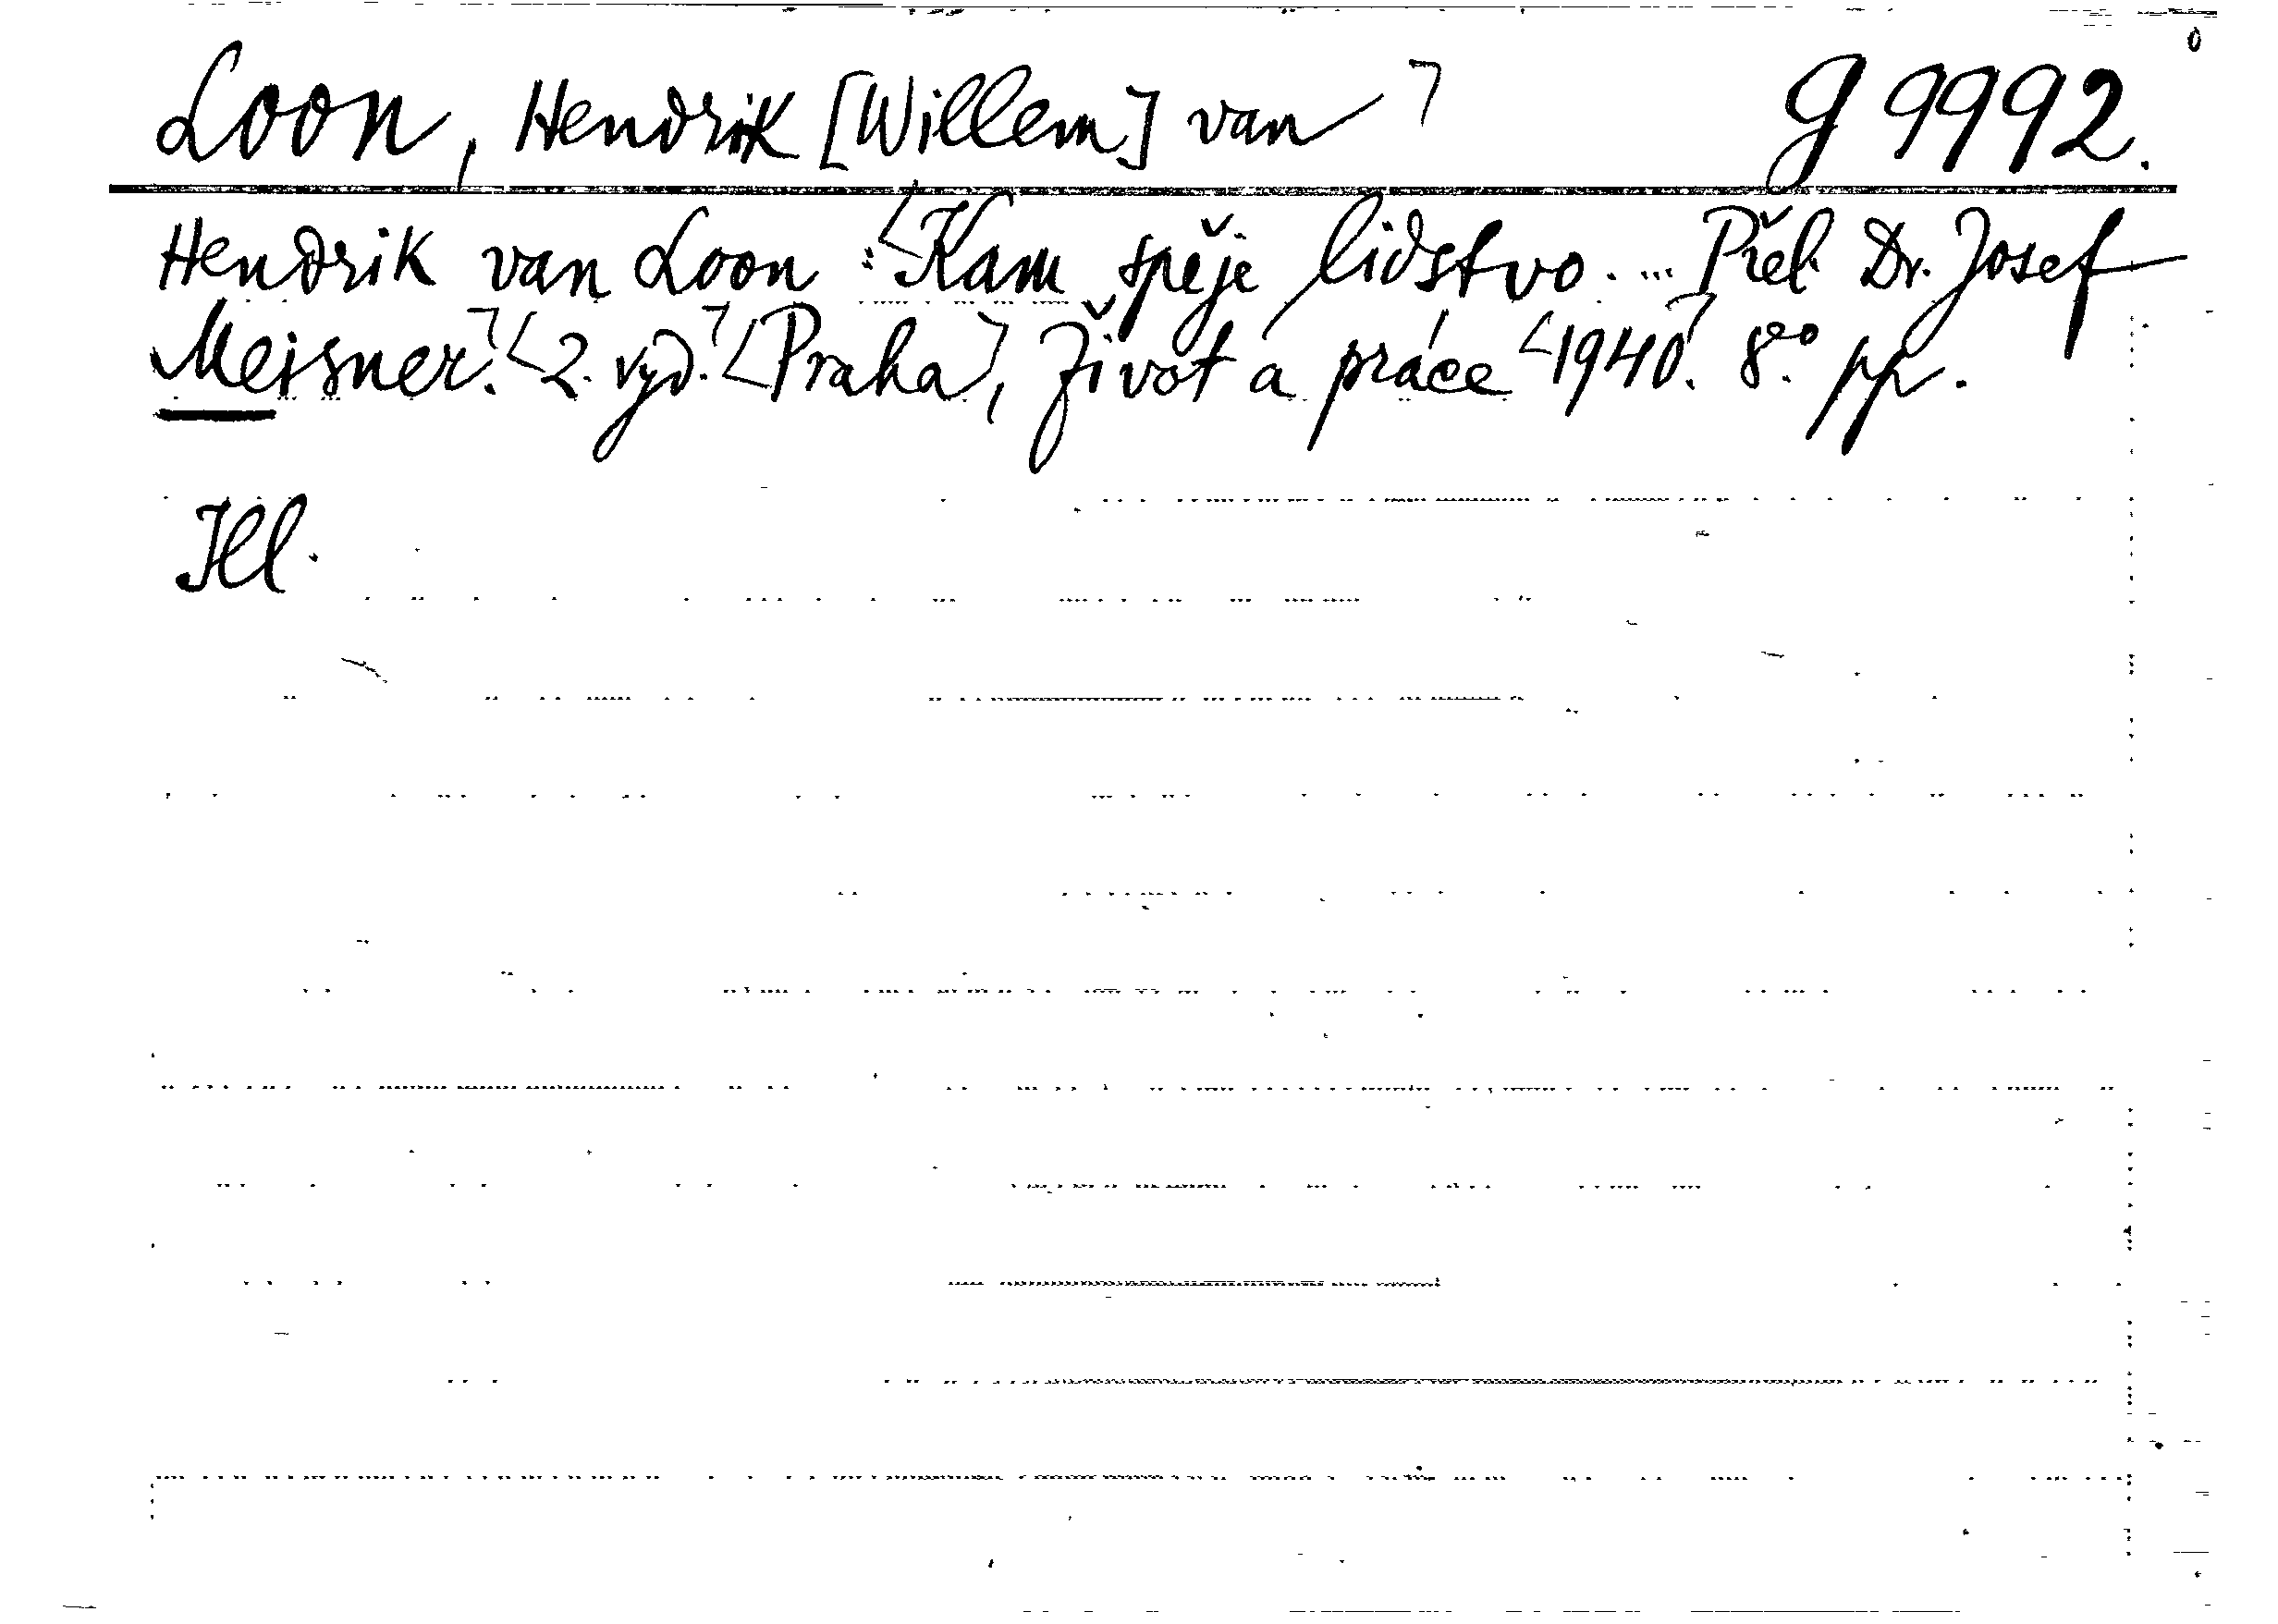 Loon, Hendrik [Willem] van ⌉ g 9992.
Hendrik van Loon : Kam spěje lidstvo. ... Přel. Dr. Josef
Mejsner. 2. vyd. Praha, Život a práce 1940. 8°.
Ill.